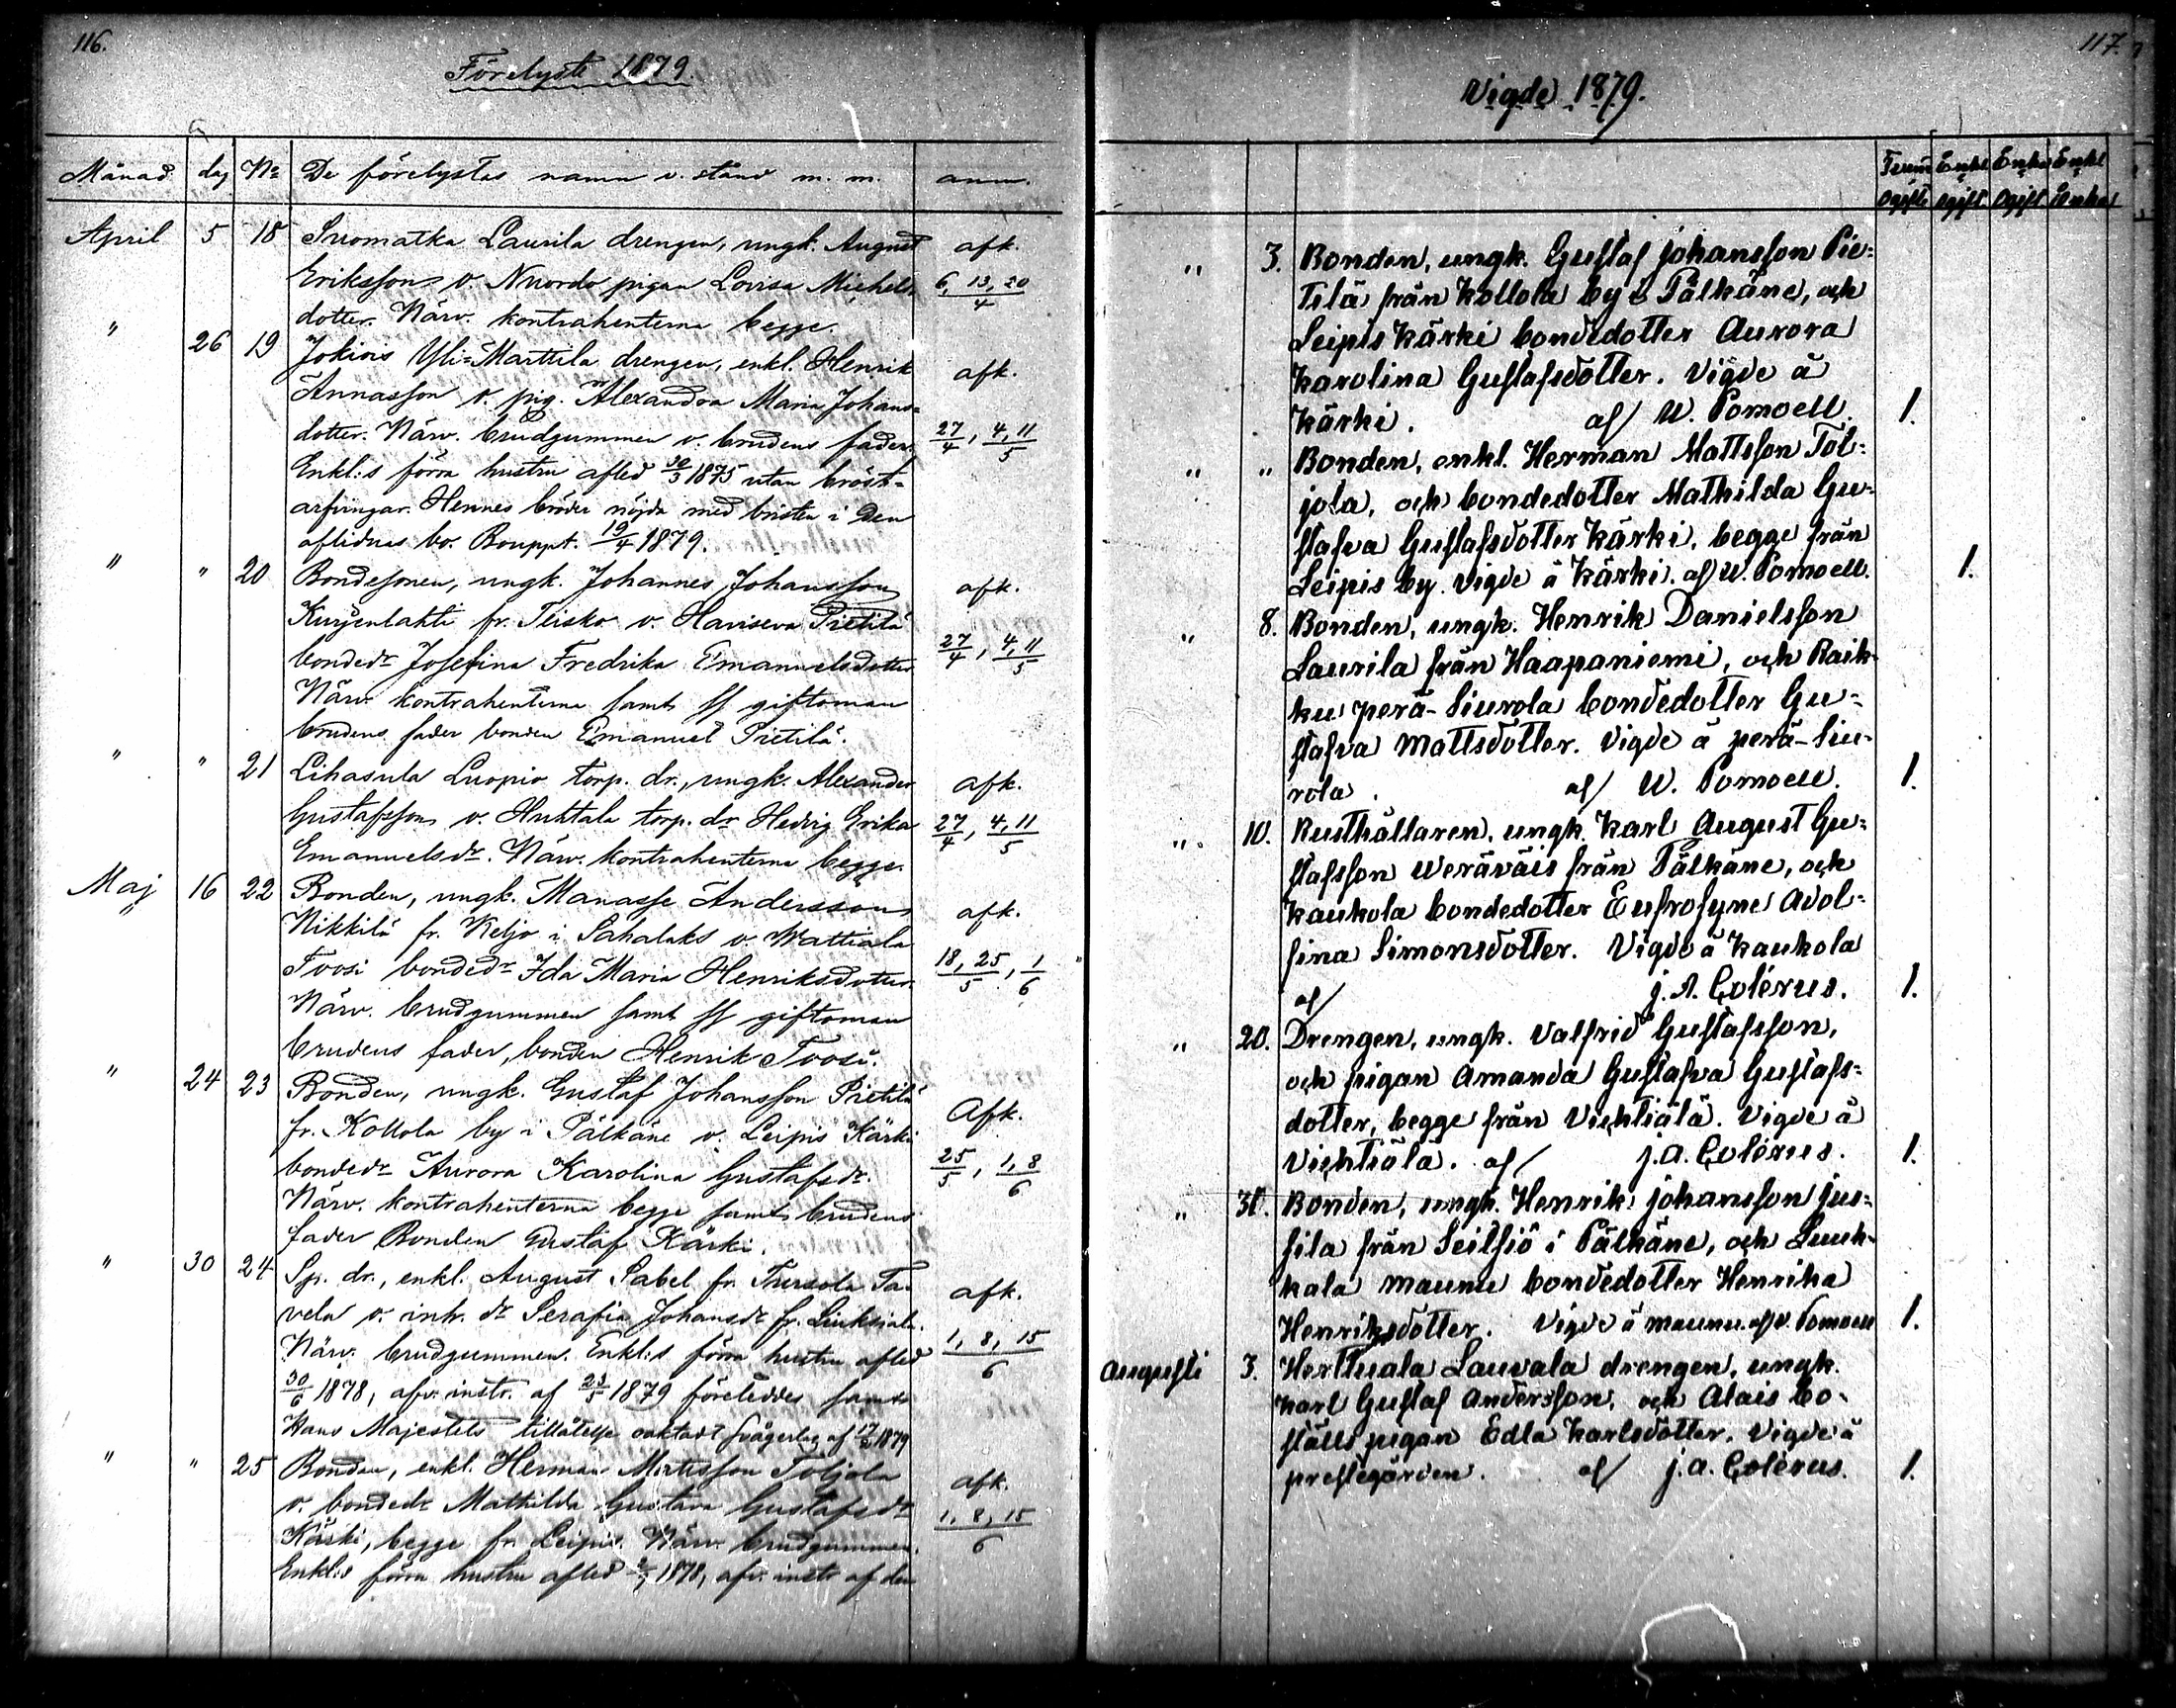 116.
Förelyste 1879.
Månad dag No De förelystas namn o. stånd m. m. anm.
April 5 18 Suomatka Laurila drengen, ungk. August afk.
Eriksson o. Nuordo pigan Lovisa Michels- 6, 13, 20/4
dotter. Närv. kontrahenterna begge.
" 26 19 Jokiois Yli-Marttila drengen, enkl. Henrik afk.
Annasson o. pig. Alexandra Maria Johans-
dotter. Närv. brudgummen o. brudens fader 27/4, 4, 11/5
Enkl:s förra hustru afled 30/3 1875 utan bröst-
arfvingar. Hennes bröder nöjda med bristen i den
aflidnas bo. Bouppt. 19/4 1879.
" " 20 Bondesonen, ungk. Johannes Johansson afk.
Kurjenlahti fr. Teisko o. Haviseva Pietilä
bondedr Josefina Fredrika Emanuelsdotter 27/4, 4, 11/5
Närv. kontrahenterna samt ss giftoman
brudens fader bonden Emanuel Pietilä.
" " 21 Lihasula Luopio torp. dr., ungk. Alexander afk.
Gustafsson o. Huhtala torp. dr Hedvig Erika 27/4, 4, 11/5
Emanuelsdr. Närv. kontrahenterna begge.
Maj 16 22 Bonden, ungk. Manasse Andersson afk.
Nikkilä fr. Keljo i Sahalaks o. Wattiala
Toosi bondedr Ida Maria Henriksdotter. 18, 25/5, 1/6
Närv. brudgummen samt ss giftoman
brudens fader, bonden Henrik Toosi.
" 24 23 Bonden, ungk. Gustaf Johansson Pietilä Afk.
fr. Kollola by i Pälkäne o. Leipis Kärki
bondedr Aurora Karolina Gustafsdr. 25/5, 1, 8/6
Närv. kontrahenterna begge samt brudens
fader Bonden Gustaf Kärki.
" 30 24 Sp. dr., enkl. August Sabel fr. Tursola Ta- afk.
vela o. inh. dr Serafia Johansdr fr. Liuksiala.
Närv. brudgummen. Enkl:s förra hustru afled 1, 8, 15/6
30/6 1878, afv. instr. af 23/5 1879 företeddes samt
Hans Majestets tillåtelse oaktadt svågerlag af 1879
" " 25 Bonden, enkl. Herman Mattsson Toljola afk.
o. bondedr Mathilda Gustava Gustafsdr 1, 8, 15/6
Kärki, begge fr. Leipis. Närv. brudgummen.
Enkl:s förra hustru afled 1878, afv. instr af den
117.
Vigde 1879.
Ogifte Enkl Ogift Enka Ogift Enkl Enka
" 3. Bonden, ungk. Gustaf Johansson Pie-
tilä från Kollola by i Pälkäne, och
Leipis Kärki bondedotter Aurora
Karolina Gustafsdotter. Vigde å
Kärki. af W. Pomoell. 1.
" " Bonden, enkl. Herman Mattsson Tol-
jola, och bondedotter Mathilda Gu-
stafva Gustafsdotter Kärki, begge från
Leipis by. Vigde å Kärki. af W. Pomoell. 1.
" 8. Bonden, ungk. Henrik Danielsson
Laurila från Haapaniemi, och Raik-
ku perä-Siurola bondedotter Gu-
stafva Mattsdotter. Vigde å perä-Siu-
rola. af W. Pomoell. 1.
" 10. Rusthållaren, ungk. Karl August Gu-
stafsson Weräväis från Pälkäne, och
Kaukola bondedotter Eufrosyne Adol-
fina Simonsdotter. Vigde å Kaukola
af J. A. Colérus. 1.
" 20. Drengen, ungk. Valfrid Gustafsson,
och pigan Amanda Gustafva Gustafs-
dotter, begge från Viehtiälä. Vigde å
Viehtiälä. af J. A. Colérus. 1.
" 30. Bonden, ungk. Henrik Johansson Jus-
sila från Seitsiö i Pälkäne, och Liuk-
kala Maunu bondedotter Henrika
Henriksdotter. Vigde å Maunu af W. Pomoell 1.
Augusti 3. Herttuala Lauvala drengen, ungk.
Karl Gustaf Andersson, och Alais bo-
ställs pigan Edla Karlsdotter. Vigde å
prestegården. af J. A. Colérus. 1.